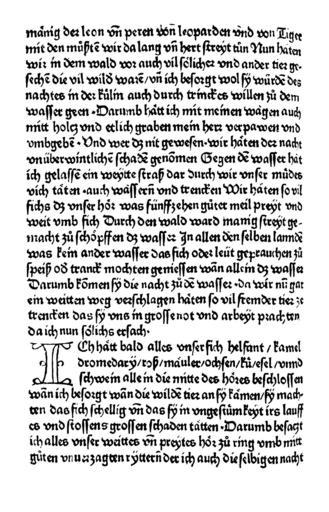 mänig der leon vñ peren võn leoparden vnd von Tiger
mit den müßten wir da lang vñ hert streyt tůn Nun haten
wir in dem wald vor auch vil sölicher vnd ander tier ge-
sechẽ die vil wild warẽ/vñ ich besorgt wol sy würdẽ des
nachtes in der külin auch durch trinckes willen zů dem
wasser geen · Darumb hätt ich mit meinen wägen auch
mitt holcz vnd etlich graben mein herr verpawen vnd
vmbgebẽ · Vnd wer dz nit gewesen · wir häten der nacht
vnüberwintlichẽ schadẽ genomen Gegen dẽ wasser hät
ich gelassẽ ein weytte straß dar durch wir vnser müdes
vich täten · auch wässern vnd trencken Wir häten so vil
fichs dz vnser hör was fünffzehen gůter meil preyt vnd
weit vmb sich Durch den wald ward manig streyt ge-
macht zů schöpffen dz wasser In allen den selben lannde
was kein ander wasser das fich oder leüt geprauchen zů
speiß od tranck mochten geniessen wañ allein dz wasser
Darumb kömen sy die nacht zů dẽ wasser · da wir nũ gar
ein weitten weg verschlagen häten so vil fremder tier ze
trencken das sy vns in grosse not vnd arbeyt prachten
da ich nun sölichs ersach ·
Ich hätt bald alles vnser fich helfant / kamel
dromedary / roß / mäuler / ochsen / kü / esel / vnnd
schwein alle in die mitte des höres beschlossen
wañ ich besorgt wañ die wildẽ tier an sy kämen / sy mach-
ten das fich schellig vñ das sy in vngestümkeyt irs lauff
es vnd stossens grossen schaden tätten · Darumb besaczt
ich alles vnser weittes vñ preytes hör zů ring vmb mitt
gůten vnuerzagten ryttern der ich auch die selbigen nacht